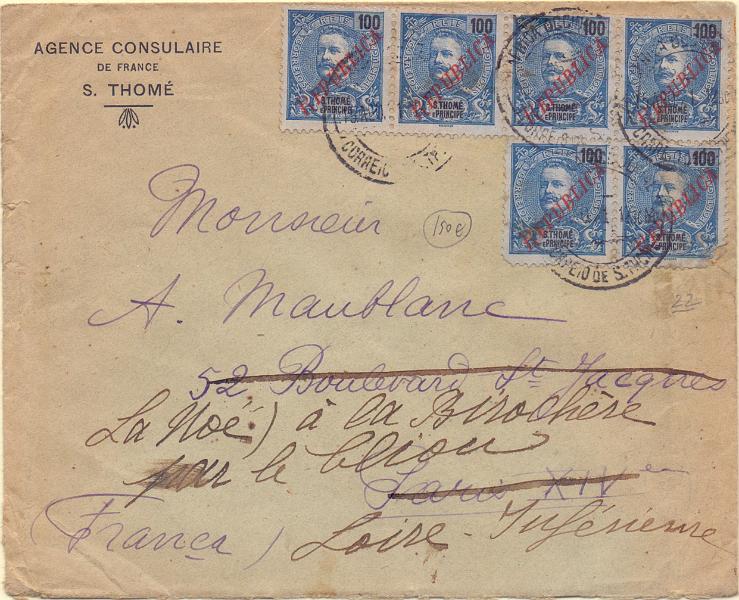 AGENCE CONSULAIRE
DE FRANCE
S. THOMÉ
100 100 100 100
REPUBLICA REPUBLICA REPUBLICA REPUBLICA
S. THOMÉ E PRINCIPE S. THOMÉ E PRINCIPE S. THOMÉ E PRINCIPE S. THOMÉ E PRINCIPE
CORREIO
100 100
REPUBLICA REPUBLICA
S. THOMÉ E PRINCIPE S. THOMÉ E PRINCIPE
CORREIO DE S. THOMÉ
Monsieur
150 e
A. Maublanc
22
52 Boulevard St Jacques
La Noé) à la Birochère
par le Clion
Paris XIVe
(França) Loire-Inférieure